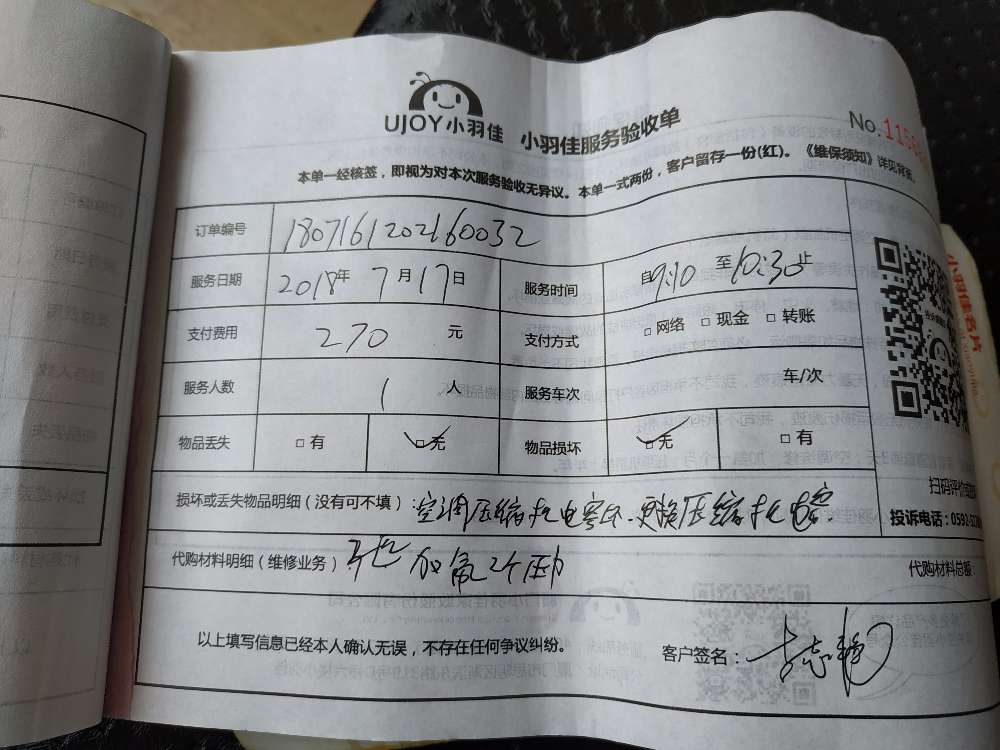 UJOY小羽佳 小羽佳服务验收单
No.
本单一经核签,即视为对本次服务验收无异议。本单一式两份,客户留存一份(红)。《维保须知》详见背面。
订单编号 1807161202160032
服务日期 2018年 7月17日 服务时间 自9:10 至10:30止
支付费用 270 元 支付方式 □网络 □现金 □转账
服务人数 1 人 服务车次 车/次
物品丢失 □有 □无 物品损坏 □无 □有
损坏或丢失物品明细(没有可不填):空调压缩机电容坏.更换压缩机电容.
代购材料明细(维修业务) 加氟2个压力
代购材料总额:
以上填写信息已经本人确认无误,不存在任何争议纠纷。 客户签名:
扫码评价
投诉电话:0592-
小羽佳名片